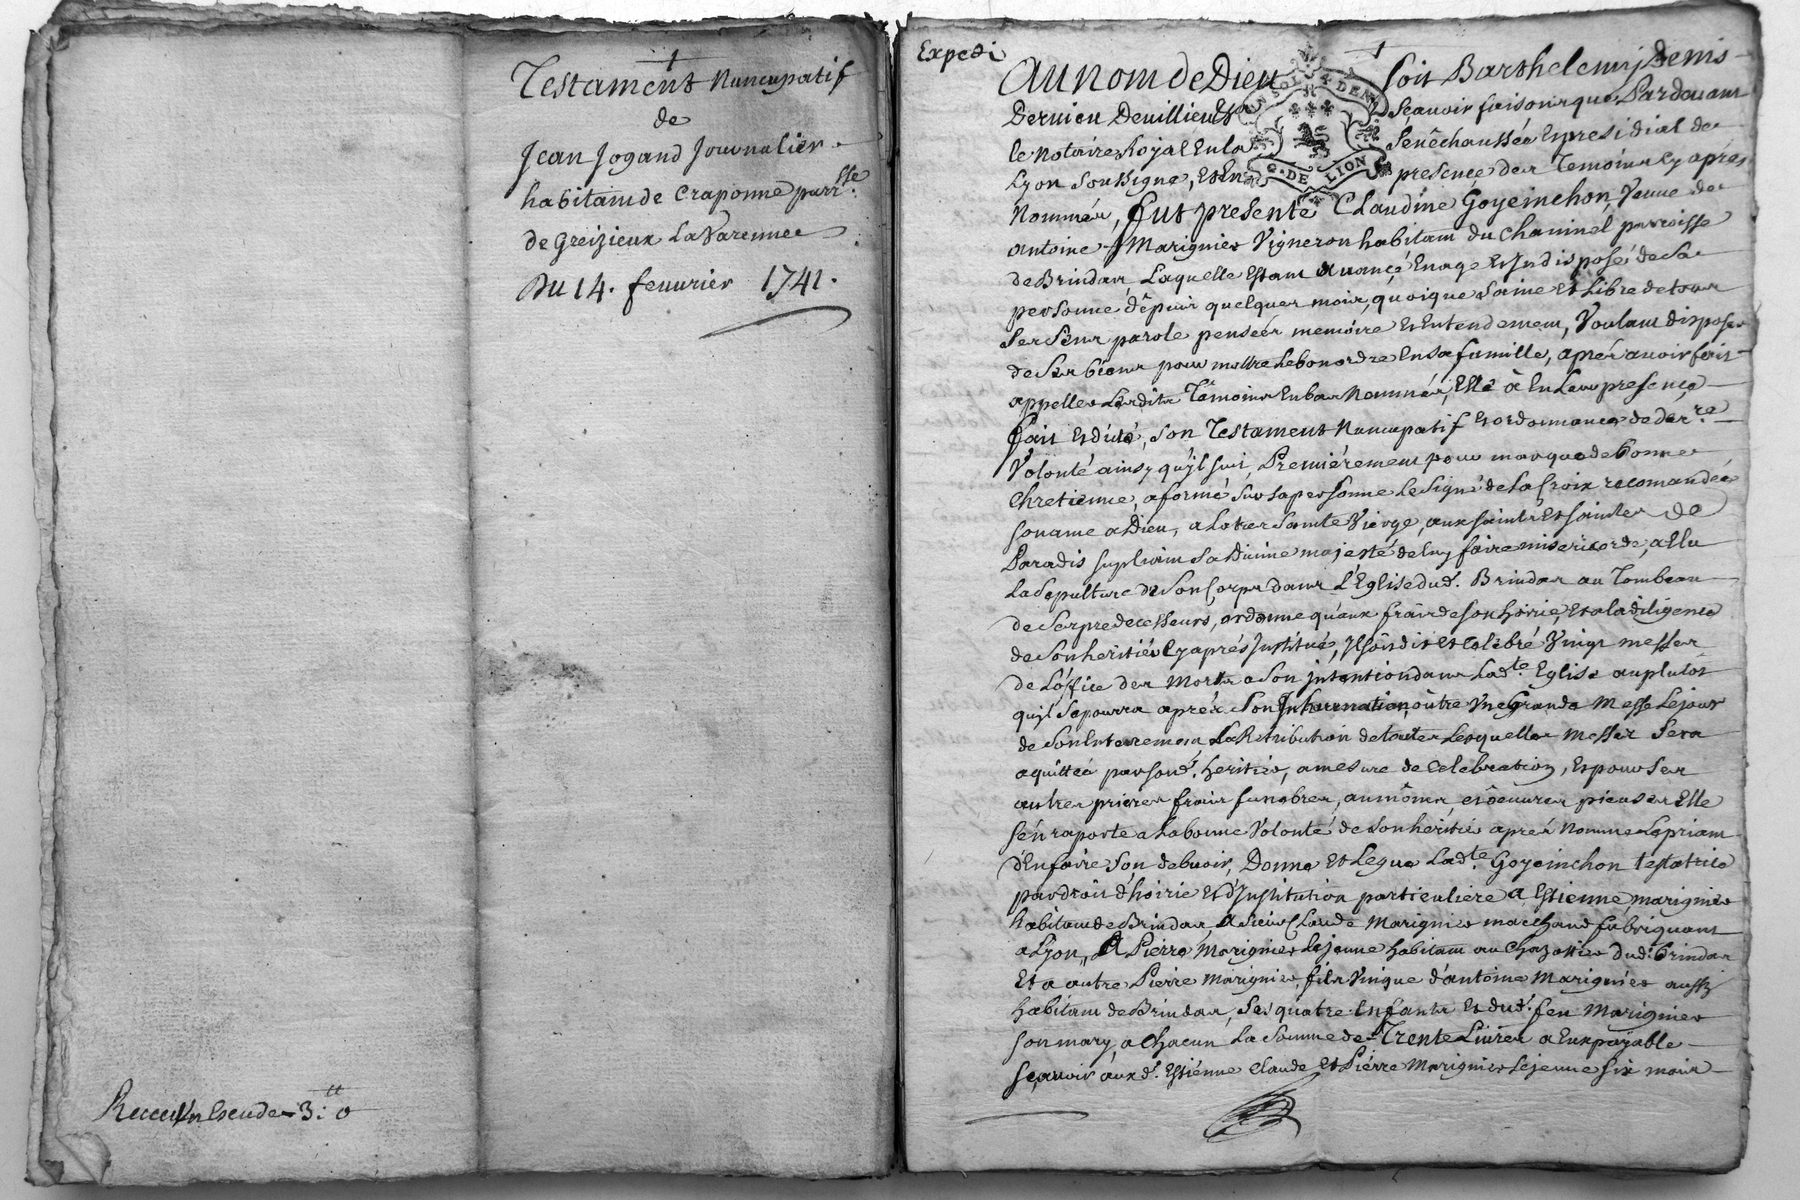 Testament Nuncupatif
de
Jean Jogand Journalier
habitant de Craponne parr.sse
de Greizieux La Varenne
Du 14. feuurier 1741.
Receu un Escude 3.tt 0
Expedi
Au nom de Dieu Soit Barthelemij Denis
Dernieu Deuillieu Et Scauoir faisons que Pardeuant
le Notaire Royal En la Senêchaussée Et presidial de
Lyon Soussigné, Et En presence des Temoins Cy aprés
G. DE LION
Nommés, fut presente Claudine Goyeinchon, Veuue de
antoine Marignier Vigneron habitant du Chaminel parroisse
de Brindas Laquelle Estant auancé En age Et Indisposé de Sa
personne dêpuis quelques mois, quoique Saine Et Libre de tous
Ses Sens parole pensées memoire Et Entendement, Voulant disposer
de Ses biens pour mettre Le bon ordre En sa famille, aprés auoir fait
appeller Lesdits Têmoins En bas Nommés, Elle à En Leur presence
fait Et dicté, Son Testament Nuncupatif Et ordonnance de der.re
Volonté ainsy qu'jl suit, Premiérement pour marque de bonne
Chretienne, a formé Sur sa personne Le Signe de La Croix recomandée
son ame a Dieu, a La tres Sainte Vierge, aux Saints Et Saintes de
Paradis supliant Sa Diuine majesté de Luy faire misericorde, a Elu
La Sepulture de Son Corps dans L'Eglise dud. Brindas au Tombeau
de Ses predecesseurs, ordonne qu'aux frais de Son hoirie, Et a la diligence
de Son heritier Cy aprés Institué, Jl Soit dit Et Celebré Vingt messes
de L'office des Morts a Son jntention dans Lad.te Eglise au plutot
qu'jl Se pourra aprés Son Inhumation, outre Vne Grande Messe Le jour
de Son Enterrement, La Retribution de toutes Lesquelles Messes Sera
aquittée par Son d. heritier, a mesure de Celebration, Et pour Ses
autres prieres frais funebres, aumônes, Et oeuures pieuses Elle
s'en raporte a La bonne Volonté de Son heritier aprés Nommé Le priant
d'En faire Son debuoir, Donne Et Legue Lad.te Goyeinchon testatrice
par droit d'hoirie Et d'Institution particuliere a Estienne marignier
habitant de Brindas, a Sieur Claude Marignier marchand fabriquant
a Lyon, A Pierre Marignier Le jeune habitant au Chazottier Dud. Brindas
Et a autre Pierre Marignier, fils Vnique d'antoine Marignier aussy
habitant de Brindas, Ses quatre Enfants Et dud. feu Marignier
son mary, a Chacun La Somme de Trente Liures a Eux payable
sçauoir aux d. Estienne Claude Et Pierre Marignier Le jeune six mois